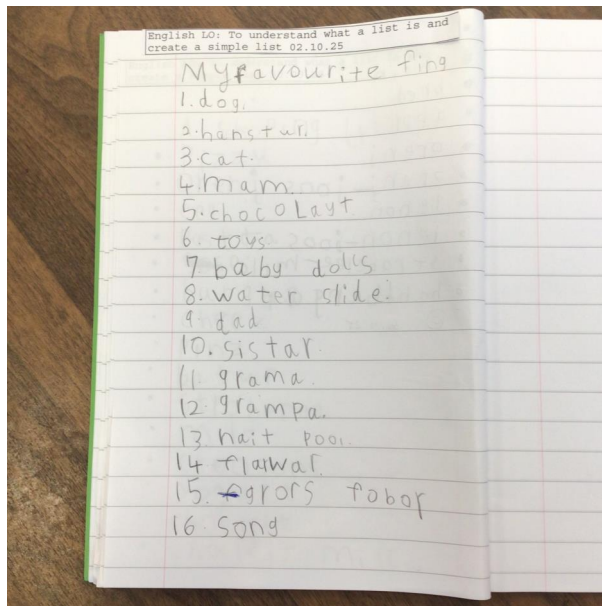 English LO: To understand what a list is and
create a simple list 02.10.25
My favourite fing
1. dog.
2. hanstur.
3. cat.
4. mam.
5. chocolayt
6. toys
7. baby dolls
8. water slide.
9. dad
10. sistar.
11. grama.
12. grampa.
13. hait pool.
14. flarwar.
15. grors fobor
16. song